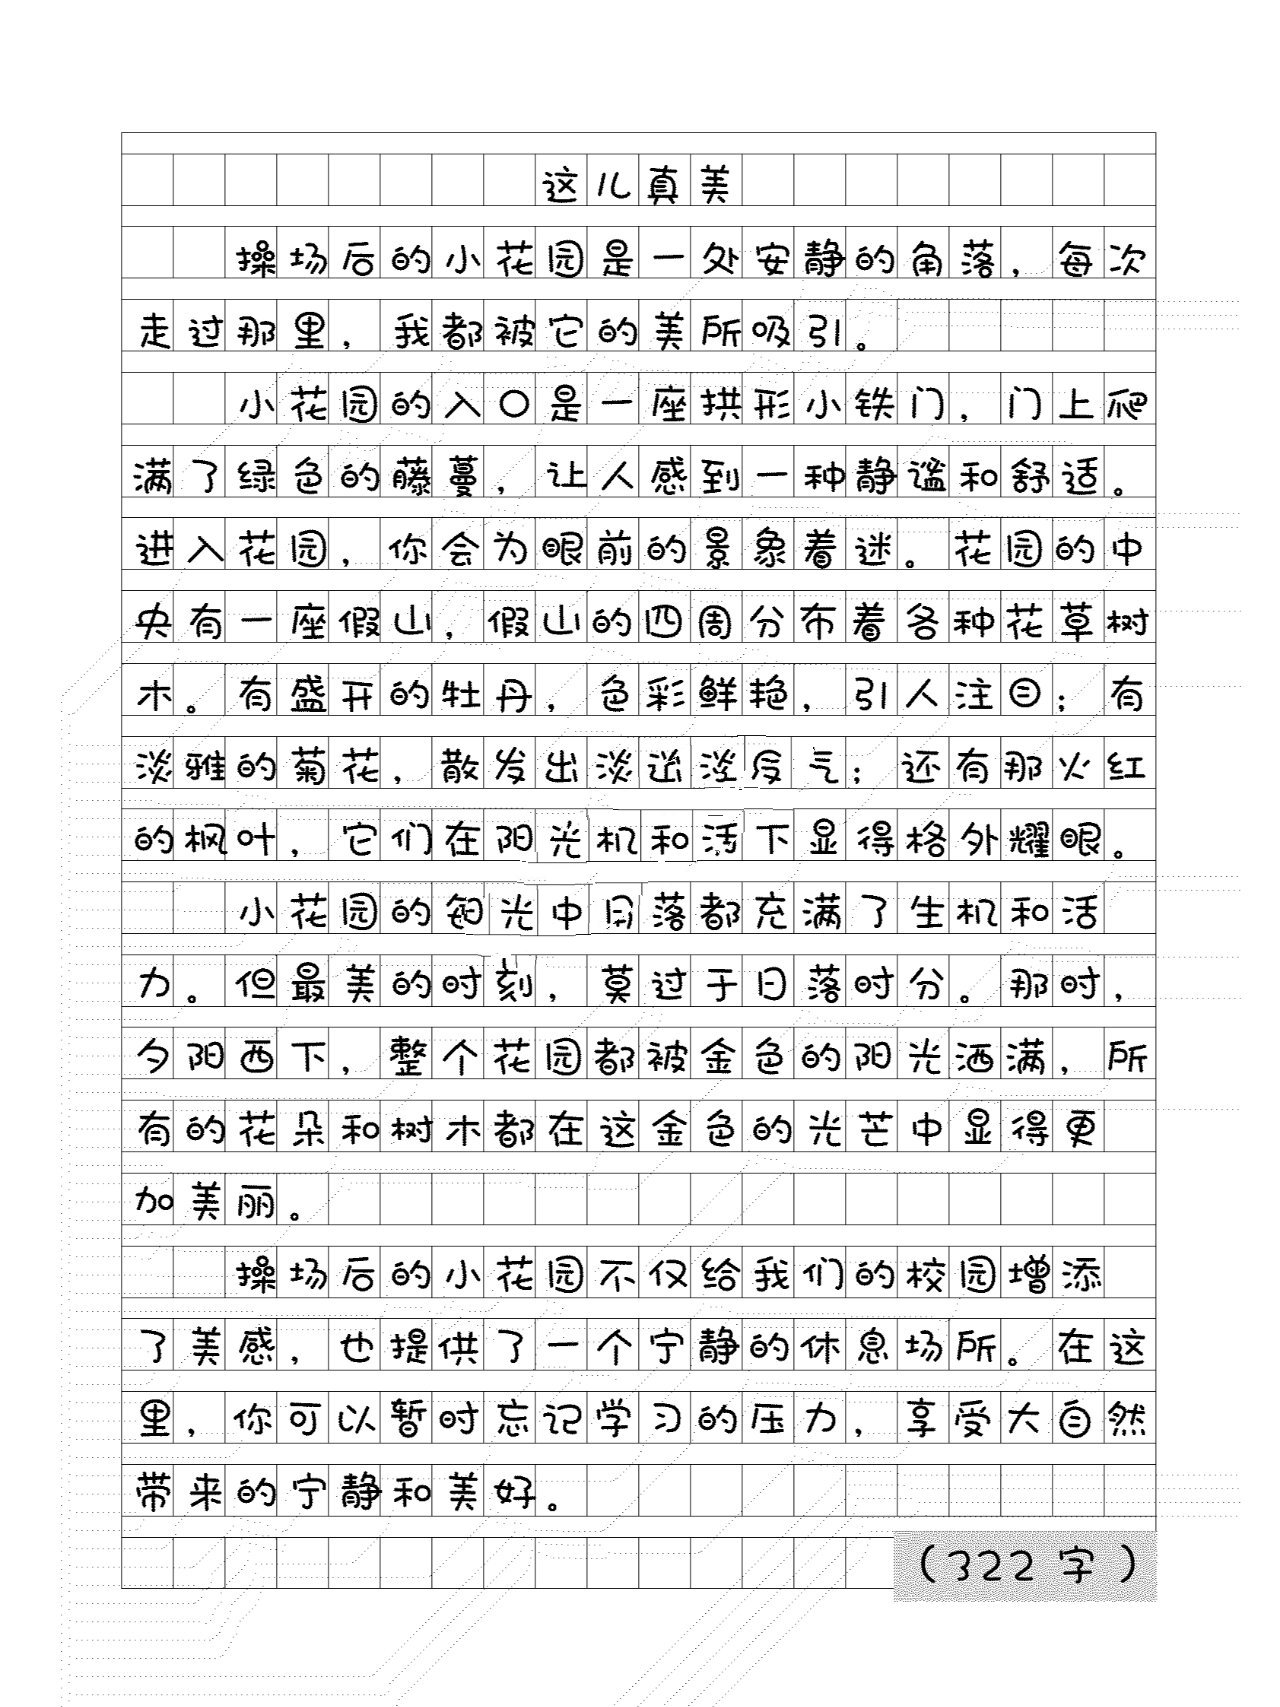 这儿真美
操场后的小花园是一处安静的角落，每次
走过那里，我都被它的美所吸引。
小花园的入口是一座拱形小铁门，门上爬
满了绿色的藤蔓，让人感到一种静谧和舒适。
进入花园，你会为眼前的景象着迷。花园的中
央有一座假山，假山的四周分布着各种花草树
木。有盛开的牡丹，色彩鲜艳，引人注目；有
淡雅的菊花，散发出淡淡气；还有那火红
的枫叶，它们在阳光机和活下显得格外耀眼。
小花园的光中落都充满了生机和活
力。但最美的时刻，莫过于日落时分。那时，
夕阳西下，整个花园都被金色的阳光洒满，所
有的花朵和树木都在这金色的光芒中显得更
加美丽。
操场后的小花园不仅给我们的校园增添
了美感，也提供了一个宁静的休息场所。在这
里，你可以暂时忘记学习的压力，享受大自然
带来的宁静和美好。
（322字）